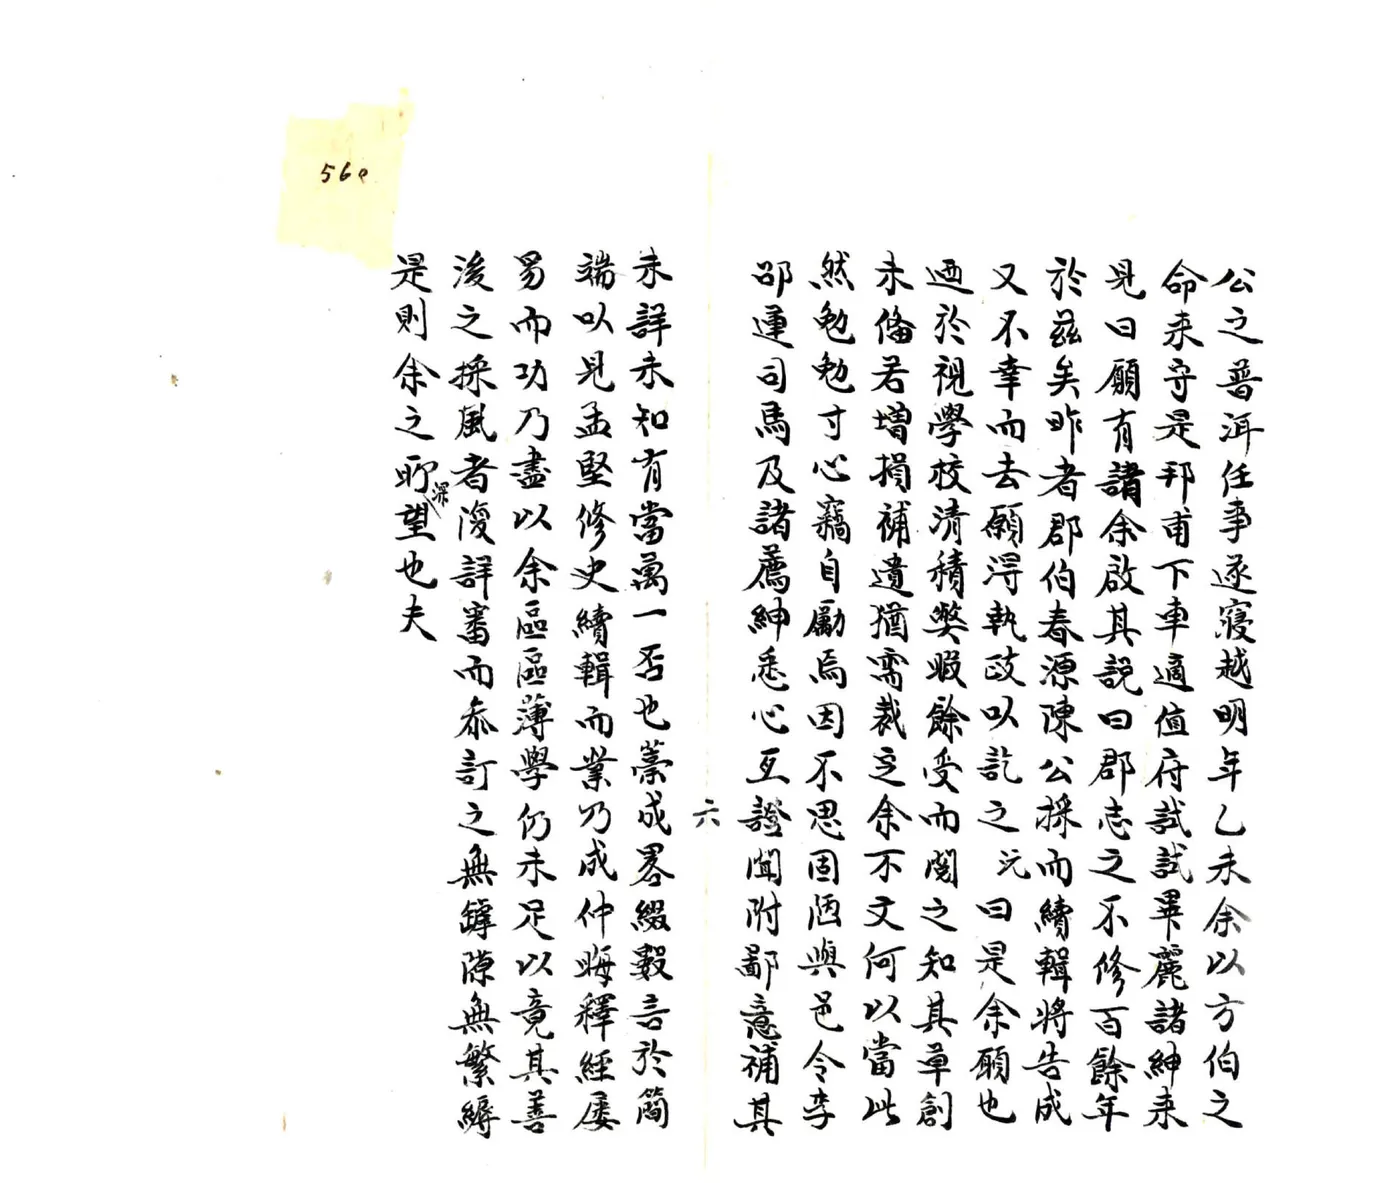 公之普洱任事遂寢越明年乙未余以方伯之
命来守是邦甫下車適值府試試畢麗諸紳来
見曰願有請余啟其說曰郡志之不修百餘年
於茲矣昨者郡伯春源陳公採而續輯將告成
又不幸而去願得執政以訖之沅曰是余願也
迺於視學校清積獘暇餘受而閱之知其草創
未俻若增損補遺猶需裁定余不文何以當此
然勉勉寸心竊自勵焉因不思固陋與邑令李
邵運司馬及諸薦紳悉心互證間附鄙意補其
六
未詳未知有當萬一否也藁成畧綴數言於簡
端以見孟堅修史續輯而業乃成仲晦釋經屡
易而功乃盡以余區區薄學仍未足以竟其善
後之採風者復詳審而叅訂之無罅隙無繁縟
是則余之所深望也夫
56e